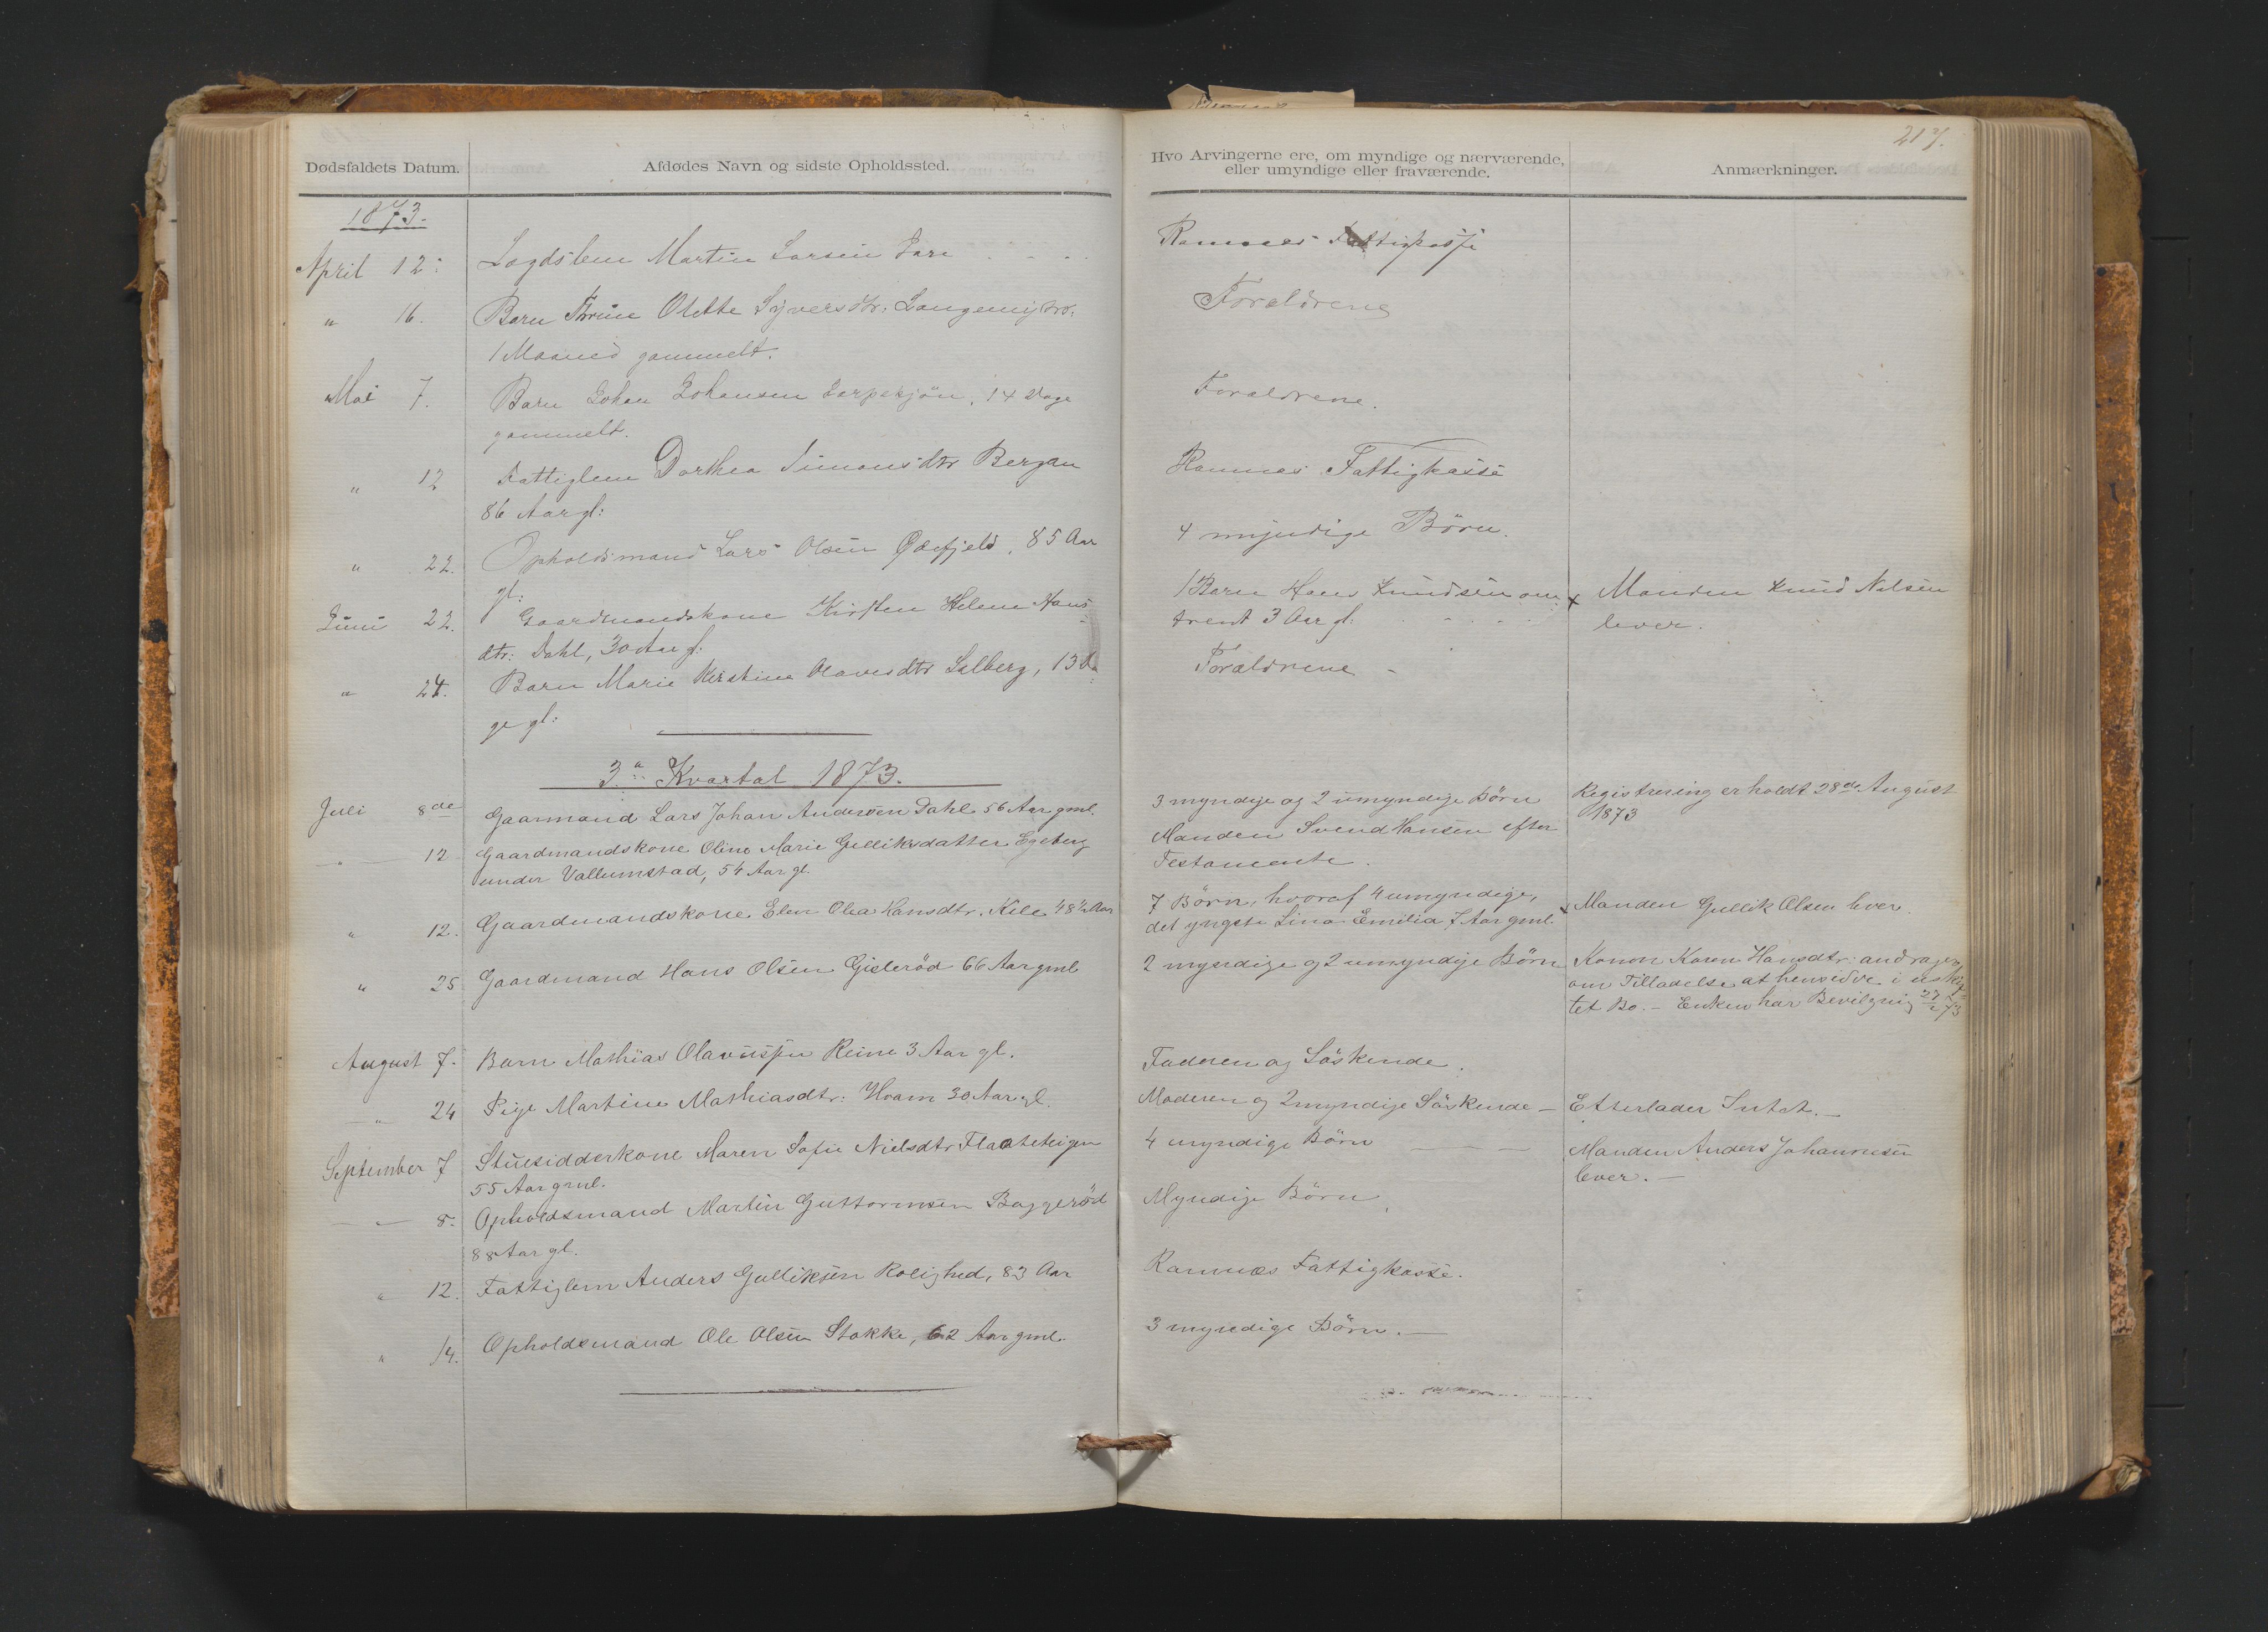 Dødsfaldets Datum.
Afdødes Navn og sidste Opholdssted.
1873.
April 12: Lægdslem Martin Larsen
" 16. Barn Thrine Olette Syversdtr: Langemyhr:
1 Maaned gammelt.
Mai 7. Barn Johan Johansen Jerpekjøn, 14 Dage
gammelt.
" 12 Fattiglem Dorthea Simonsdtr Bergan
86 Aar gl:
" 22. Opholdsmand Lars Olsen Ødefjeld, 85 Aar
gl:
Juni 22. Gaardmandskone Kirsten Helene Hans
dtr: Dahl, 30 Aar gl:
" 24. Barn Marie Kirstine Olavesdtr Solberg, 13 Da
ge gl:
3die Kvartal 1873.
Juli 8de Gaarmand Lars Johan Andersen Dahl 56 Aar gml.
12 Gaardmandskone Oline Marie Gulliksdatter Egeberg
under Vallumstad, 54 Aar gl.
" 12. Gaardmandskone Elen Olea Hansdtr. Kile 48½ Aar
" 25 Gaardmand Hans Olsen Gislerød 66 Aar gml
August 7. Barn Mathias Olavussen Reine 3 Aar gl.
" 24 Pige Martine Mathiasdtr: Hvam 30 Aar gl.
September 7 Stuesidderkone Maren Sofie Nielsdtr Flaateteigen
55 Aar gml.
8. Opholdsmand Martin Guttormsen Baggerød
88 Aar gl.
" 12. Fattiglem Anders Gulliksen Rolighed, 83 Aar
" 14. Opholdsmand Ole Olsen Stokke, 62 Aar gml.
217.
Hvo Arvingerne ere, om myndige og nærværende,
eller umyndige eller fraværende.
Anmærkninger.
Ramnes Fattigkasse
Forældrene
Forældrene.
Ramnes Fattigkasse
4 myndige Børn.
1 Barn Hans Knudsen om x Manden Knud Nilsen
trent 3 Aar gl. lever.
Forældrene
3 myndige og 2 umyndige Børn Registrering er holdt 28de August
1873
Manden Svend Hansen efter
Testamente.
7 Børn, hvoraf 4 umyndige,
det yngste Lina Emilia 7 Aar gml. x Manden Gullik Olsen lever.
2 myndige og 2 umyndige Børn Konen Karen Hansdtr: andrager
om Tilladelse at hensidde i uskif
tet Bo. - Enken har Bevilgning
Faderen og Søskende.
Moderen og 2 myndige Søskende - Efterlader Intet. -
4 myndige Børn Manden Anders Johannesen
lever. -
Myndige Børn
Ramnæs Fattigkasse.
3 myndige Børn. -